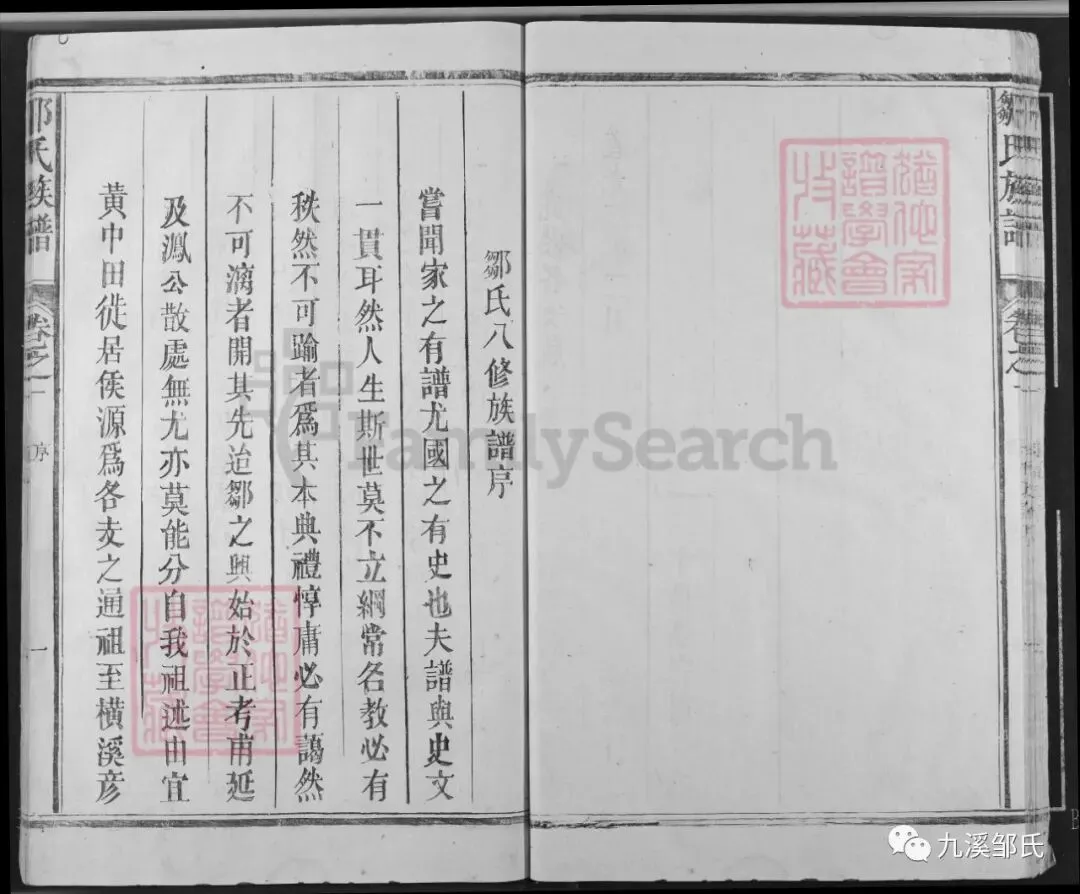 鄒氏族譜
卷之一
鄒氏八修族譜序
嘗聞家之有譜尤國之有史也夫譜與史文
一貫耳然人生斯世莫不立綱常名教必有
秩然不可踰者為其本典禮惇庸必有藹然
不可漓者開其先迨鄒之興始於正考甫延
及澙公散處無尤亦莫能分自我祖述由宜
黃中田徙居侯源為各支之通祖至橫溪彥
鄒氏族譜
卷之一
序
一
FamilySearch
九溪邹氏